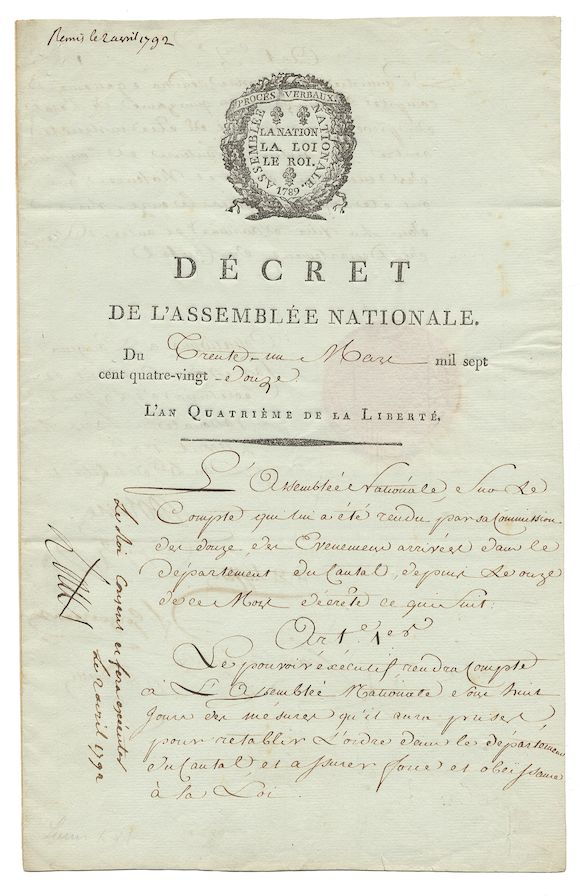 Remis le 2 avril 1792
PROCÈS VERBAUX.
ASSEMBLÉE NATIONALE.
LA NATION
LA LOI
LE ROI.
1789.
DÉCRET
DE L'ASSEMBLÉE NATIONALE.
Du Trente-un Mars mil sept
cent quatre-vingt-douze.
L'AN QUATRIÈME DE LA LIBERTÉ.
L'Assemblée Nationale Sur Le
Compte qui lui a été rendu par sa Commission
des douze, des Evenemens arrivés dans le
département du Cantal, depuis Le onze
de ce Mois décrète ce qui suit:
Art. 1er
Le pouvoir éxécutif rendra Compte
à L'Assemblée Nationale sous huit
Jours des mésures qu'il aura prises
pour retablir L'ordre dans le départément
du Cantal et assurer force et obeïssance
à la Loi
Le Roi consent et fera exécuter
Le 2 avril 1792